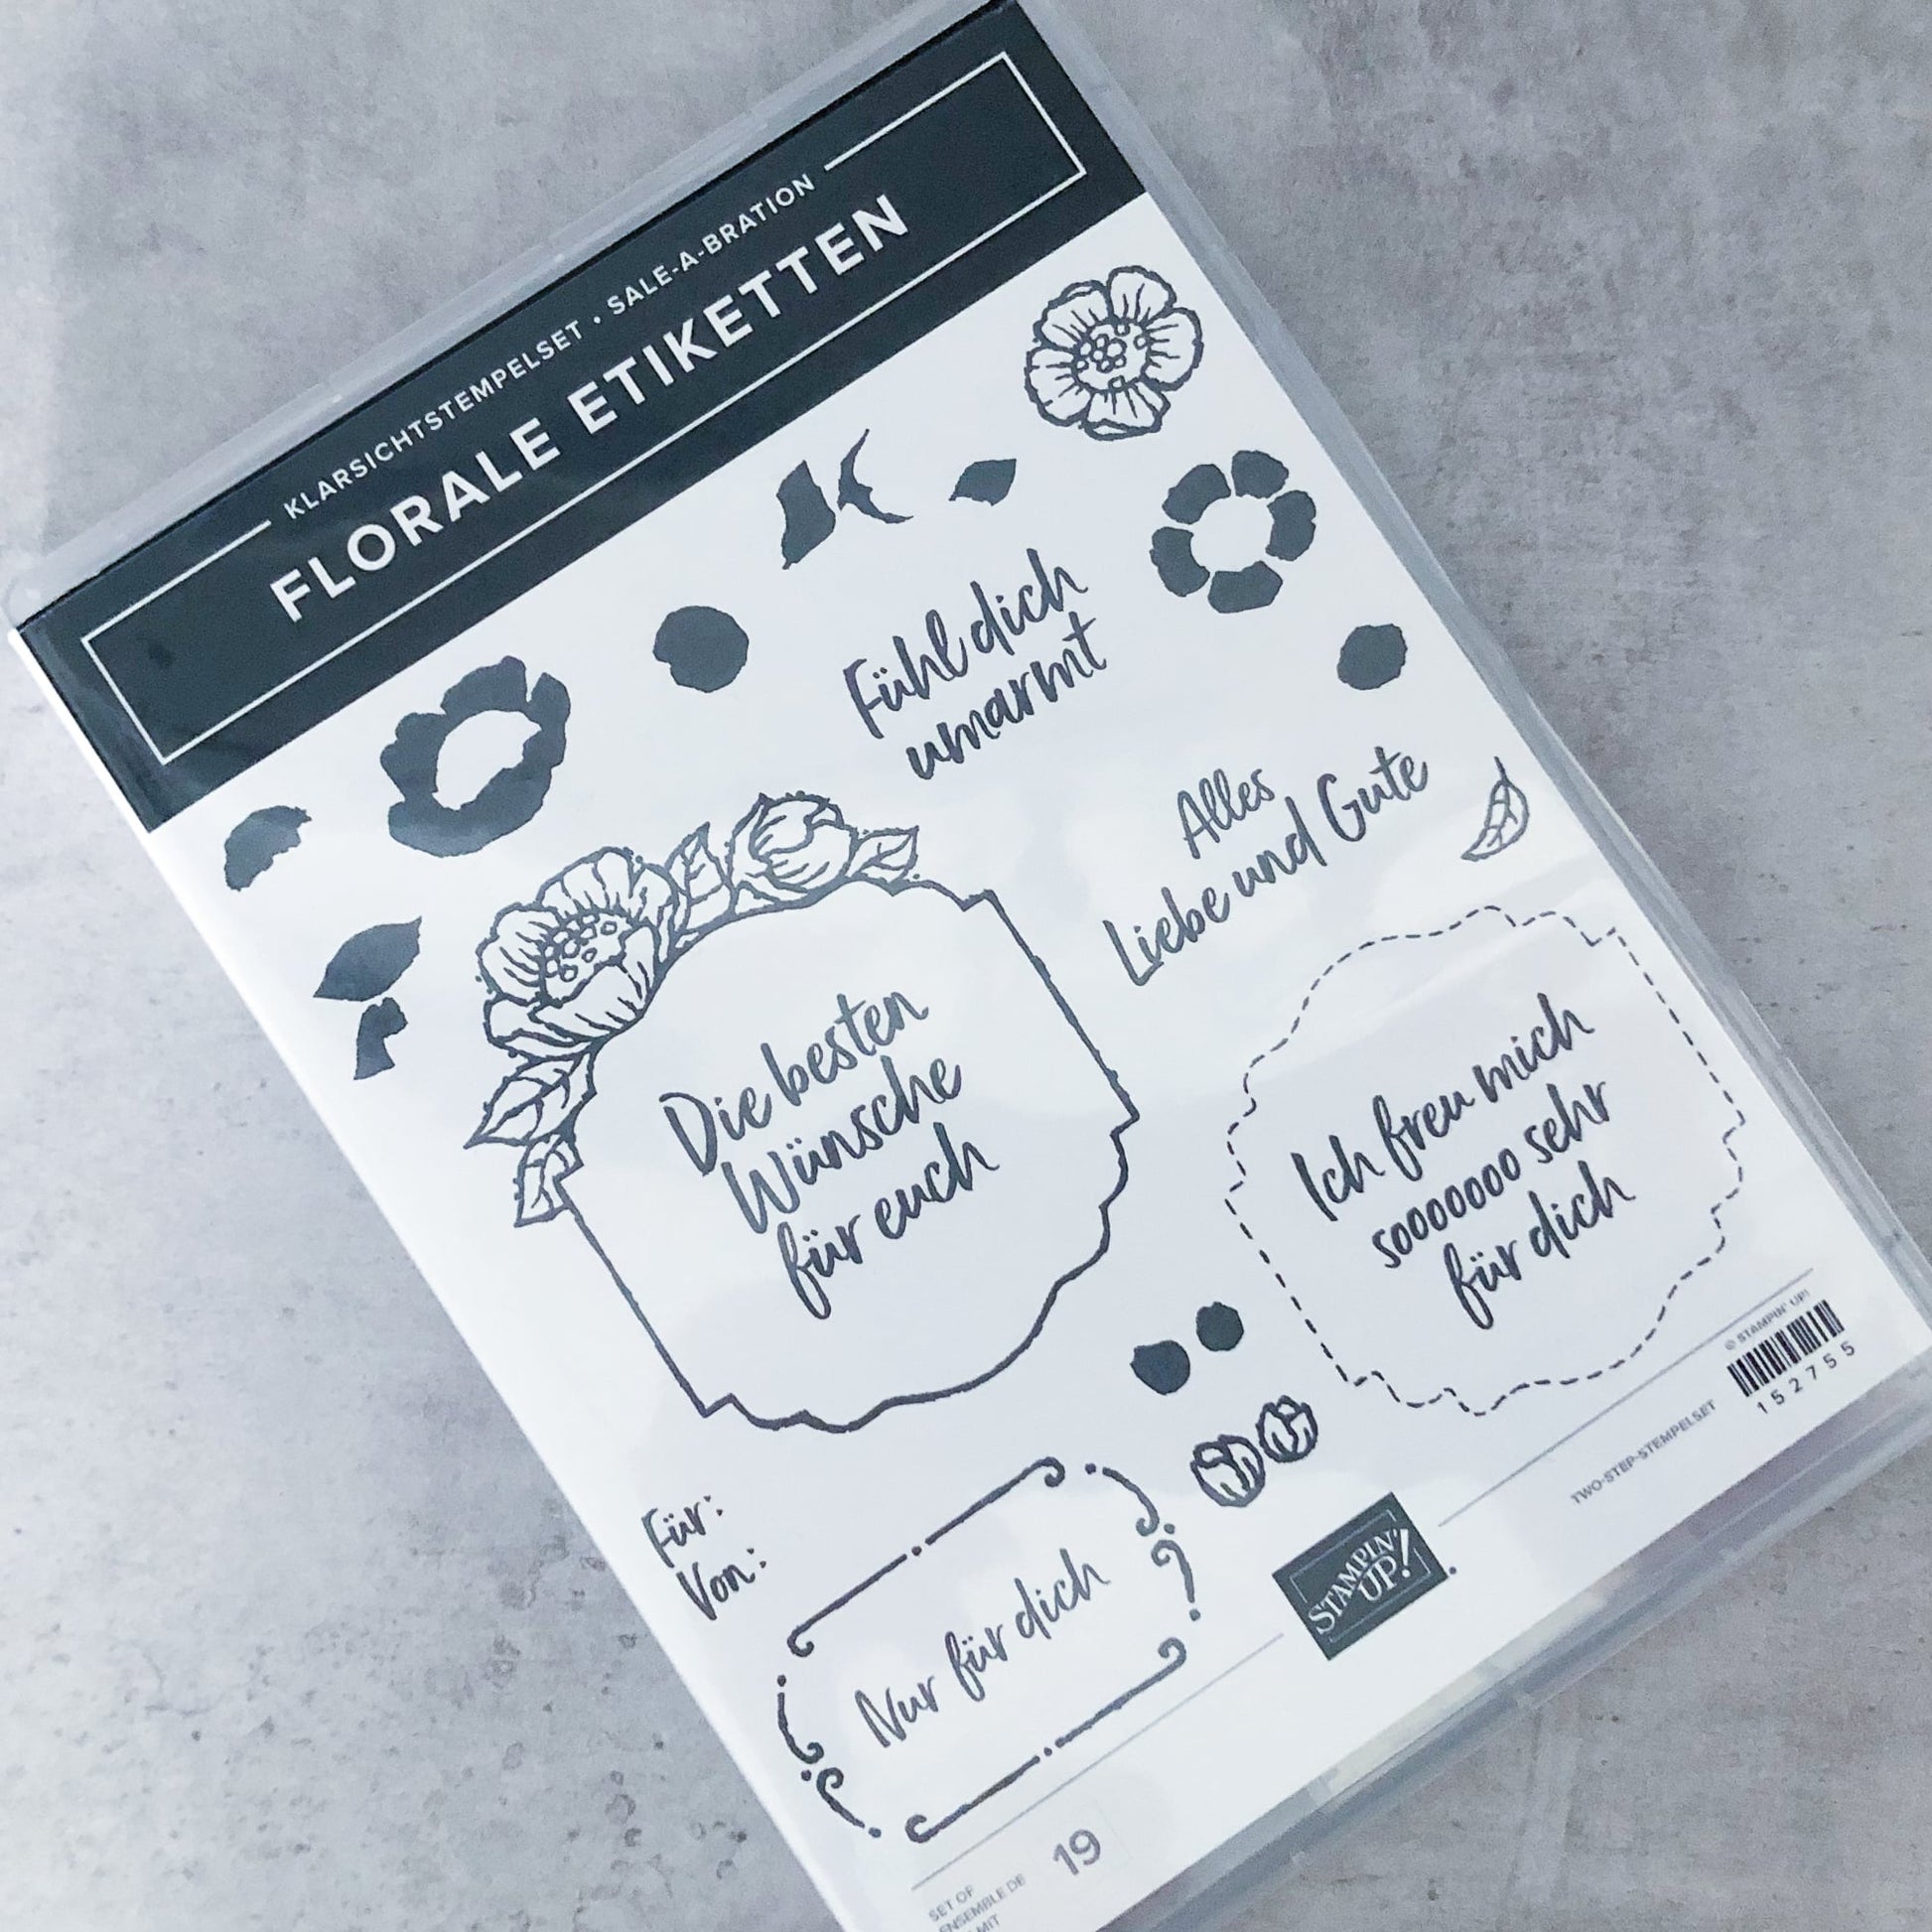 KLARSICHTSTEMPELSET • SALE-A-BRATION
FLORALE ETIKETTEN
Fühl dich
umarmt
Alles
Liebe und Gute
Die besten
Wünsche
für euch
Ich freu mich
sooooooo sehr
für dich
Für:
Von:
Nur für dich
STAMPIN'
UP!
© STAMPIN' UP!
152755
TWO-STEP-STEMPELSET
19
SET OF
ENSEMBLE DE
MIT